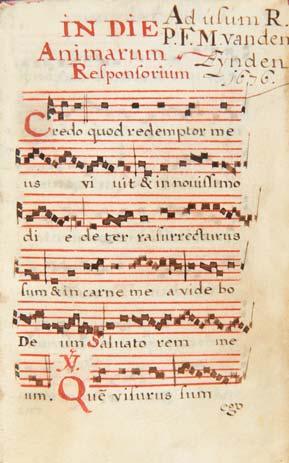 IN DIE
Animarum
Responsorium
Ad usum R.
P.F.M. vanden
Eynden
1676.
Credo quod redemptor me
us vi uit & in nouissimo
di e de ter ra surrecturus
sum & in carne me a vide bo
De um Saluato rem me
um. ℣. Quē visurus sum
ego